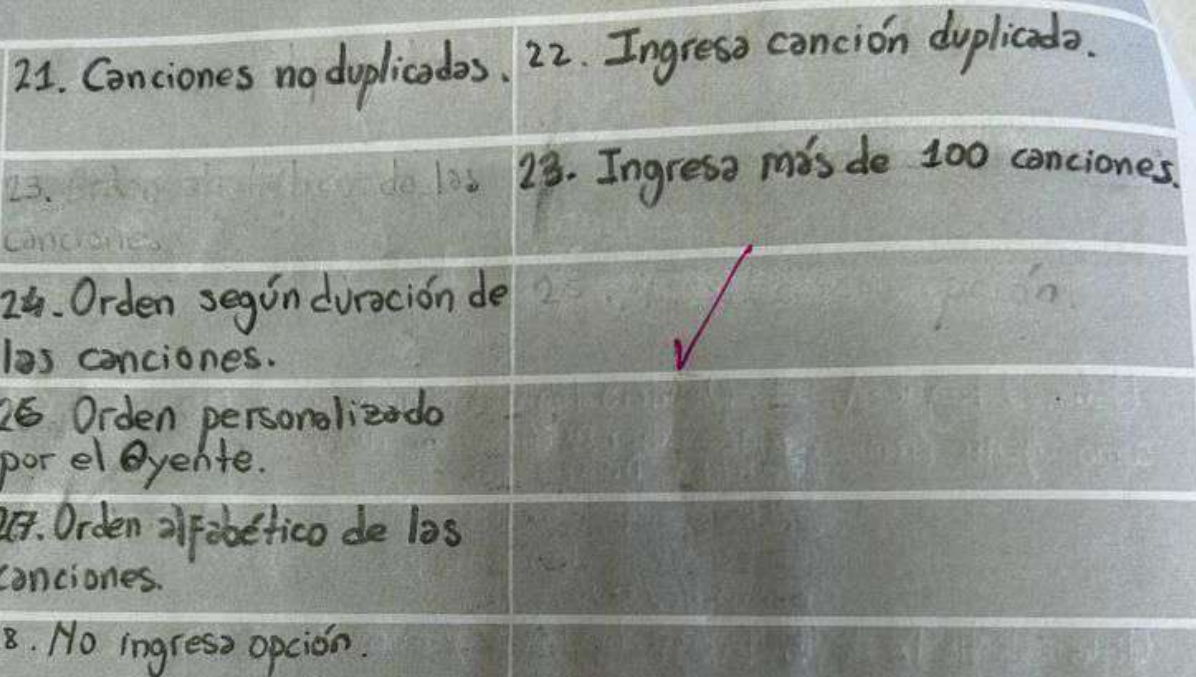 21. Canciones no duplicadas.
22. Ingresa canción duplicada.
23. Orden alfabético de las
canciones.
23. Ingresa más de 100 canciones.
24. Orden según duración de
las canciones.
26 Orden personalizado
por el Oyente.
27. Orden alfabético de las
canciones.
8. No ingresa opción.